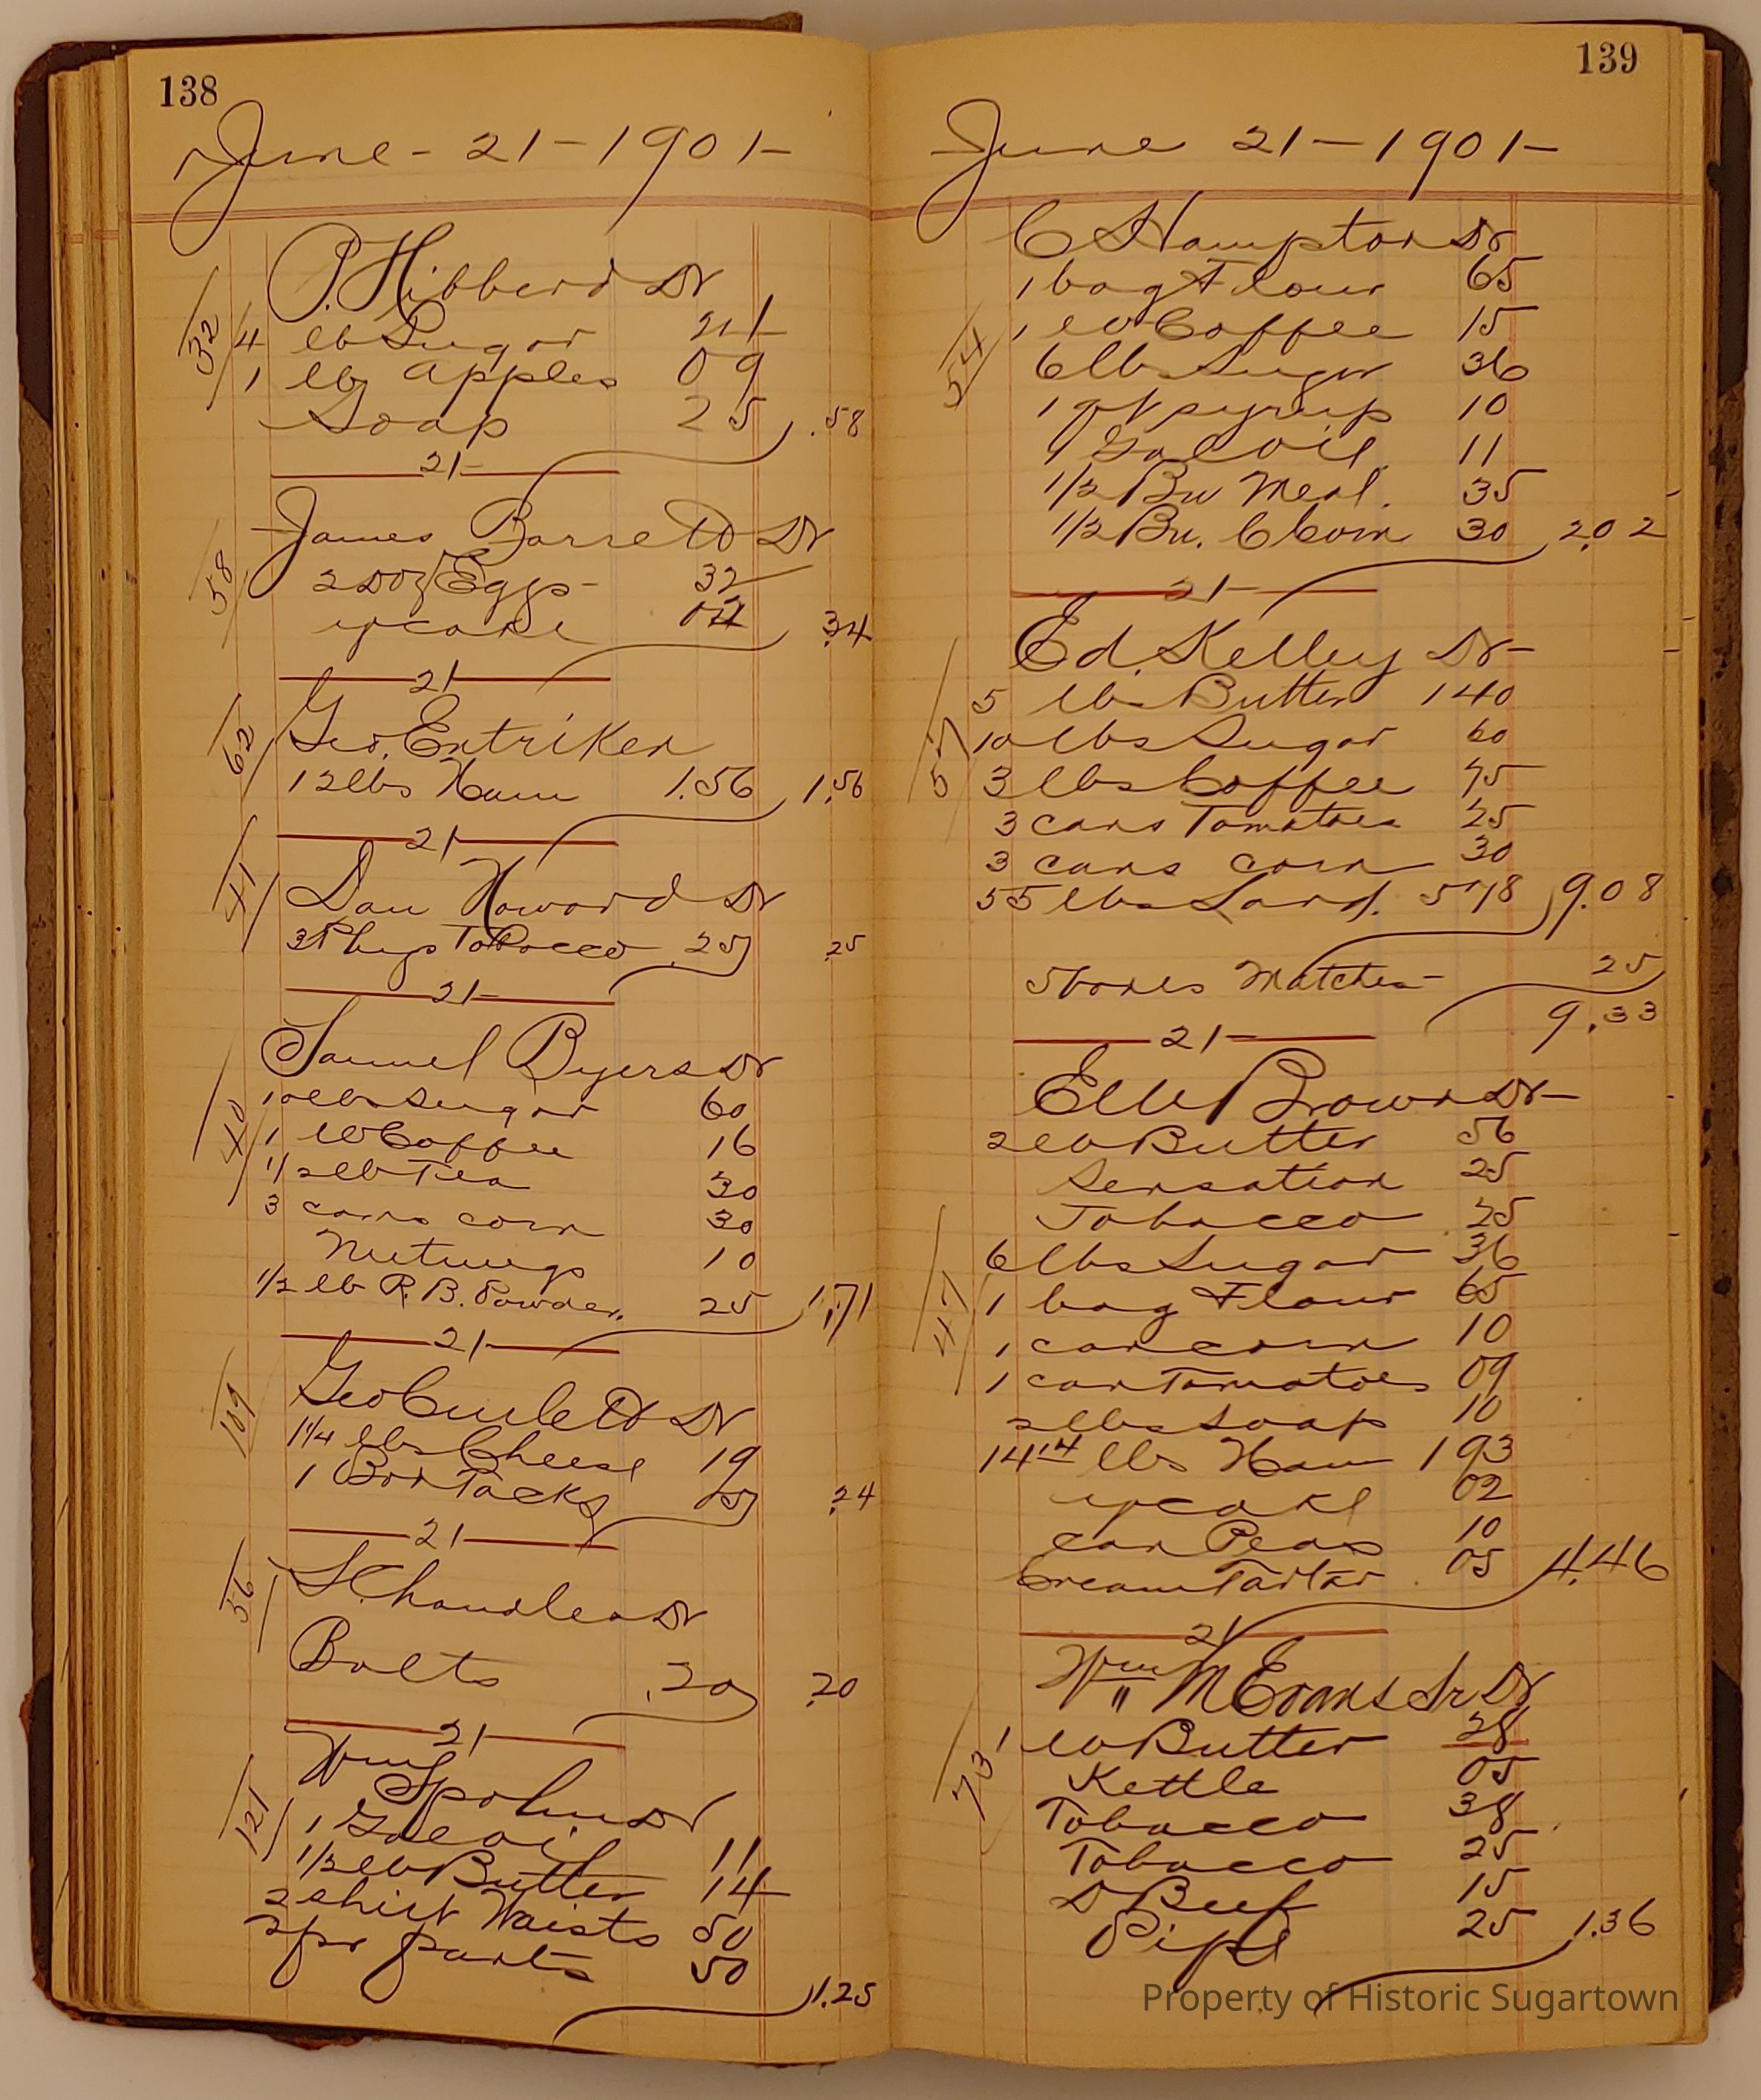 138
June - 21 - 1901 -
P. Hibberd Dr
32
4 lb Sugar 24
1 lb apples 09
Soap 25 .58
21-
James Barrett Dr
58
2 Doz Eggs - 32
yeast 02 .34
21
Geo. Entriken
62
12 lbs Ham 1.56 1.56
21-
41
Dan Howard Dr
3 Plugs Tobacco .25 .25
21-
Samuel Byers Dr
40
10 lbs Sugar 60
1 lb Coffee 16
1/2 lb Tea 30
3 cans corn 30
Nutmegs 10
1/2 lb R. B. Powder. 25 1.71
21-
109
Geo Curlett Dr
1 1/4 lbs Cheese 19
1 Box Tacks 05 .24
21-
56
S Chandler Dr
Bolts .20 .20
21
Wm Spohn Dr
121
1 Gal oil 11
1/2 lb Butter 14
2 shirt Waists 50
2 pr pants 50
1.25
139
June 21 - 1901 -
C Hampton Dr
1 bag Flour 65
54
1 lb Coffee 15
6 lbs Sugar 36
1 qt syrup 10
1 Gal oil 11
1/2 Bu Meal. 35
1/2 Bu. C Corn 30 2.02
21-
Ed. Kelley Dr-
57
5 lbs Butter 140
10 lbs Sugar 60
3 lbs Coffee 75
3 cans Tomatoes 25
3 cans corn 30
55 lbs Lard. 578 9.08
5 boxes Matches - 25
9.33
21-
Ell Brown Dr-
2 lb Butter 56
Sensation 25
Tobacco 25
47
6 lbs Sugar 36
1 bag Flour 65
1 can corn 10
1 can Tomatoes 09
2 lbs Soap 10
14 14 lbs Ham 193
yeast 02
can Peas 10
Cream Tartar 05 4.46
21
Wm M Evans Sr Dr
73
1 lb Butter 28
Kettle 05
Tobacco 38
Tobacco 25
D Beef 15
Pipe 25 1.36
Property of Historic Sugartown